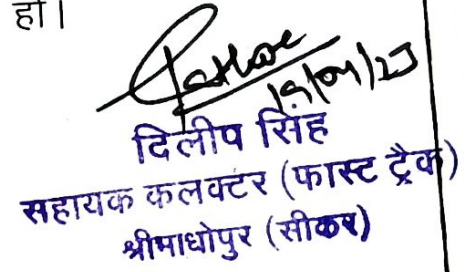 हो।
दिलीप सिंह
सहायक कलक्टर (फास्ट ट्रैक)
श्रीमाधोपुर (सीकर)